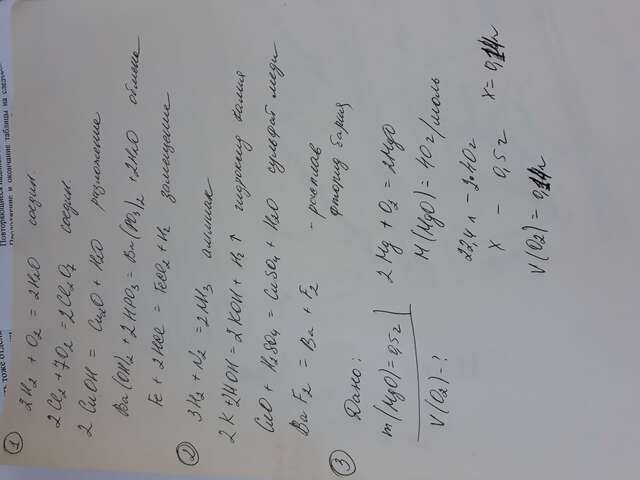 Повторяющиеся
Продолжение и окончание таблицы на
тоже отдели
①
2H₂ + O₂ = 2H₂O соедин.
2Cl₂ + 7O₂ = 2Cl₂O₇ соедин.
2 CuOH = Cu₂O + H₂O разложение
Ba(OH)₂ + 2HPO₃ = Ba(PO₃)₂ + 2H₂O обмена
Fe + 2HCl = FeCl₂ + H₂ замещение
②
3H₂ + N₂ = 2NH₃ аммиак
2K + 2HOH = 2KOH + H₂↑ гидроксид калия
CuO + H₂SO₄ = CuSO₄ + H₂O сульфат меди
BaF₂ = Ba + F₂ - расплав
фторид бария
③
Дано:
m(MgO) = 0,5г
V(O₂) - ?
2Mg + O₂ = 2MgO
M(MgO) = 40г/моль
22,4л - 2·40г
X - 0,5г X = 0,14л
V(O₂) = 0,14л